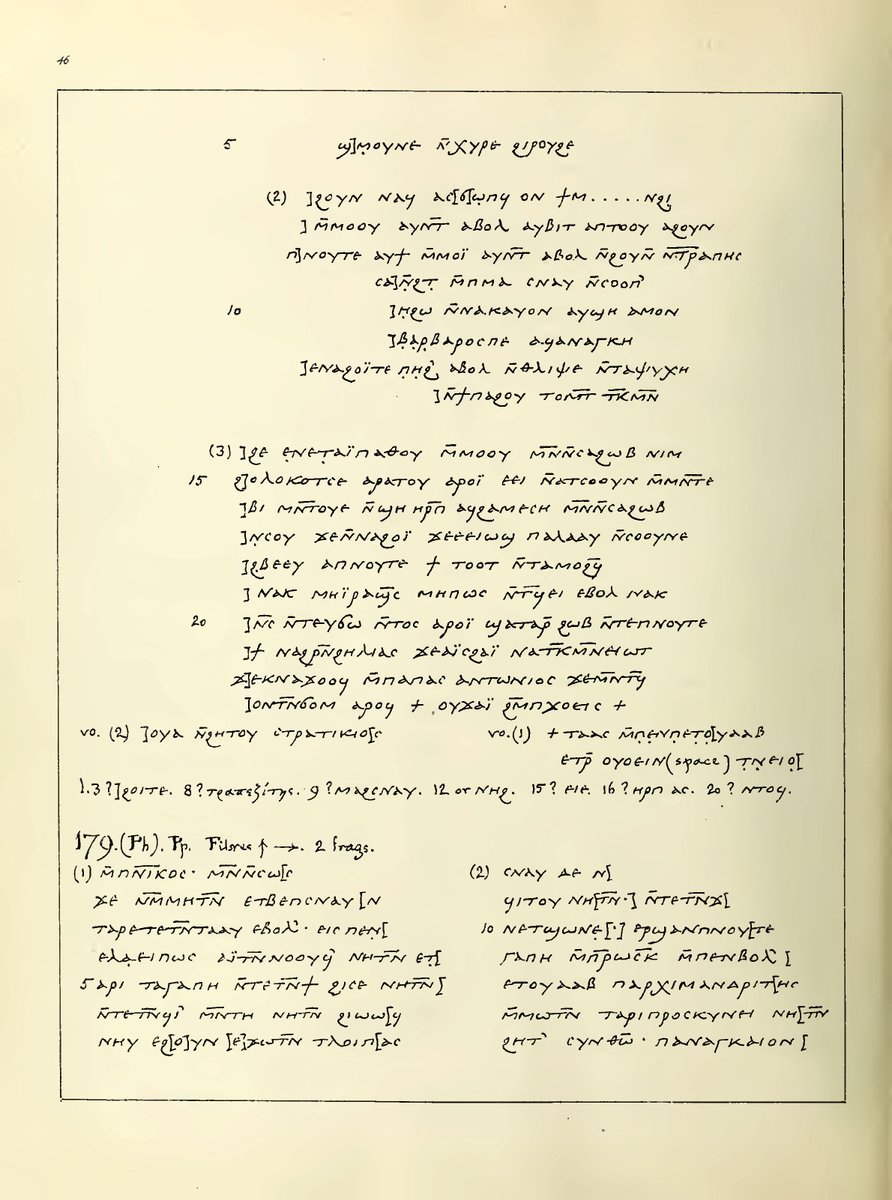 46
5 ϣ]ⲙⲟⲩⲛⲉ ⲛ̄ϫⲩⲣⲉ ϩⲓⲣⲟⲩϩⲉ
(2) ]ϩⲟⲩⲛ ⲛⲁϥ ⲁⲥ[ϭ]ⲱⲡϥ ⲟⲛ ϯⲙ.....ⲛϩⲓ
] ⲙ̄ⲙⲟⲟⲩ ⲁⲩⲛⲧ̄ ⲁⲃⲟⲗ ⲁⲩⲃⲓⲧ ⲁⲡⲧⲟⲟⲩ ⲁϩⲟⲩⲛ
ⲡ]ⲛⲟⲩⲧⲉ ⲁⲩϯ ⲙ̄ⲙⲟⲓ̈ ⲁⲩⲛⲧ̄ ⲁⲃⲟⲗ ⲛ̄ϩⲟⲩⲛ̄ ⲛⲧ̄ⲣⲁⲡⲏⲥ
ⲥⲁ]ⲛ̄ϩⲧ ⲙ̄ⲡⲙⲁ ⲥⲛⲁⲩ ⲛ̄ⲥⲟⲟⲡ'
10 ]ⲏϩⲱ ⲛ̄ⲛⲁⲕⲁⲩⲟⲛ ⲁⲩϣⲏ ⲁⲙⲟⲛ
]ⲃⲁⲣⲃⲁⲣⲟⲥⲡⲉ ⲁϥⲁⲛⲁⲅⲕⲏ
]ⲉⲛⲁϩⲟⲓ̈ⲧⲉ ⲡⲏϩ ⲁⲃⲟⲗ ⲛ̄ⲑⲗⲓⲯⲉ ⲛ̄ⲧⲁⲯⲩⲭⲏ
]ⲛ̄ϯⲡⲁϩⲟⲩ ⲧⲟⲙⲧ̄ ⲧ̄ⲕⲙⲛ̄
(3) ]ϩⲉ ⲉⲛⲉⲧⲁⲓ̈ⲡⲁⲑⲟⲩ ⲙ̄ⲙⲟⲟⲩ ⲙⲛ̄ⲛ̄ⲥⲁϩⲱⲃ ⲛⲓⲙ
15 ϩ]ⲟⲗⲟⲕⲟⲧⲥⲉ ⲁⲣⲁⲧⲟⲩ ⲁⲣⲟⲓ̈ ⲉⲉⲓ ⲛ̄ⲁⲧⲥⲟⲟⲩⲛ ⲙ̄ⲙⲛ̄ⲧⲉ
]ⲃⲓ ⲙⲛ̄ⲧⲟⲩⲉ ⲛ̄ϣⲏ ⲏⲣⲡ̄ ⲁϥϩⲁⲙⲉⲥⲏ ⲙⲛ̄ⲛ̄ⲥⲁϩⲱⲃ
]ⲛⲥⲟⲩ ϫⲉⲛ̄ⲛⲁϩⲟⲓ̈ ϫⲉⲉⲉⲓⲱϣ ⲡⲁⲗⲁⲁⲩ ⲛ̄ⲥⲟⲟⲩⲛⲉ
]ϩⲃⲉⲉⲩ ⲁⲡⲛⲟⲩⲧⲉ ϯ ⲧⲟⲟⲧ ⲛ̄ⲧⲁⲙⲟϩϥ̄
] ⲛⲁⲕ ⲙⲏⲓ̈ⲣⲁϣ̄ⲥ ⲙⲏⲡⲱⲥ ⲛ̄ⲧϥ̄ⲉⲓ ⲉⲃⲟⲗ ⲛⲁⲕ
20 ]ⲛ̄ⲥ ⲛ̄ⲧⲉⲩϭⲱ ⲛ̄ⲧⲟⲥ ⲁⲣⲟⲓ̈ ϣⲁⲧⲁⲣ̄ ϩⲱⲃ ⲛ̄ⲧⲉⲡⲛⲟⲩⲧⲉ
]ϯ ⲛⲁϩⲣⲛ̄ϩⲏⲗⲓⲁⲥ ϫⲉⲁⲓ̈ⲥϩⲁⲓ̈ ⲛⲁⲧ̄ⲕⲙⲛ̄ⲉⲓⲱⲧ
ϫ]ⲉⲕⲛⲁϫⲟⲟϥ ⲙ̄ⲡⲁⲡⲁⲥ ⲁⲛⲧⲱⲛⲓⲟⲥ ϫⲉⲙⲛ̄ⲧϥ̄
]ⲟⲛⲧⲛ̄ϭⲟⲙ ⲁⲣⲟϥ + ⲟⲩϫⲁⲓ̈ ϩⲙ̄ⲡϫⲟⲉⲓⲥ +
vo. (2) ]ⲟⲩⲁ ⲛ̄ϩⲏⲧⲟⲩ ⲥⲧⲣⲁⲧⲓⲕⲓⲟ[ⲥ vo.(1) + ⲧⲁⲁⲥ ⲙ̄ⲡⲉⲩⲡⲉⲧⲟ[ⲩⲁⲁⲃ
ⲉⲧⲣ̄ ⲟⲩⲟⲉⲓⲛ (space) ⲧⲛⲉⲓⲟ[
l.3 ?]ϩⲟⲓⲧⲉ. 8 ? τραπεζίτης. 9 ? ⲙⲁϩⲥⲛⲁⲩ. 12 or ⲛⲏϩ. 15 ? ⲉⲓⲉ. 16 ? ⲏⲣⲡ ⲁⲥ. 20 ? ⲛⲧⲟϥ.
179.(Ph). Pp. Fibres ↑ →. 2 frags.
(1) ⲙ̄ⲡⲛ̄ⲓ̄ⲕⲟⲥ· ⲙⲛ̄ⲛ̄ⲥⲱ[ⲥ
ϫⲉ ⲛ̄ⲙⲙⲏⲧⲛ̄ ⲉⲧⲃⲉⲡⲥⲛⲁⲩ [ⲛ
ⲧⲁⲣⲉⲧⲉⲧⲛ̄ⲧⲁⲁⲩ ⲉⲃⲟⲗ· ⲉⲓⲥ ⲡⲉⲛ[
ⲉⲗⲁⲉⲓⲡⲱⲥ ⲁⲓ̈ⲧⲛ̄ⲛⲟⲟⲩϥ' ⲛⲏⲧⲛ̄ ⲉⲧ[
5 ⲁⲣⲓ ⲧⲁⲅⲁⲡⲏ ⲛ̄ⲧⲉⲧⲛ̄ϯ ϩⲓⲥⲉ ⲛⲏⲧⲛ̄ [
ⲛ̄ⲧⲉⲧⲛ̄ϥⲓ' ⲙⲛ̄ⲧⲏ ⲛⲏⲧⲛ̄ ϩⲓⲱⲱ[ϥ
ⲛⲏⲩ ⲉϩ[ⲟ]ⲩⲛ [ⲉ]ϫⲱⲧⲛ̄ ⲧⲗⲟⲓⲡ[ⲁⲥ
(2) ⲥⲛⲁⲩ ⲇⲉ ⲛ[
ϥⲓⲧⲟⲩ ⲛⲏ[ⲧⲛ̄·] ⲛ̄ⲧⲉⲧⲛ̄ϫ[
10 ⲛⲉⲧϣⲱⲛⲉ[·] ⲉⲣϣⲁⲛⲡⲛⲟⲩ[ⲧⲉ
ⲅⲁⲡⲏ ⲙ̄ⲡⲣ̄ⲱⲥⲕ̄ ⲙ̄ⲡⲉⲛⲃⲟⲗ [
ⲉⲧⲟⲩⲁⲁⲃ ⲡⲁⲣⲭⲓⲙⲁⲛⲇⲣⲓⲧ[ⲏⲥ
ⲙ̄ⲙⲱⲧⲛ̄ ⲧⲁⲣⲓⲡⲣⲟⲥⲕⲩⲛⲉⲓ ⲛⲏ[ⲧⲛ̄
ϩⲏⲧ' ⲥⲩⲛⲑⲱ̄· ⲡⲁⲛⲁⲅⲕⲁⲓⲟⲛ [